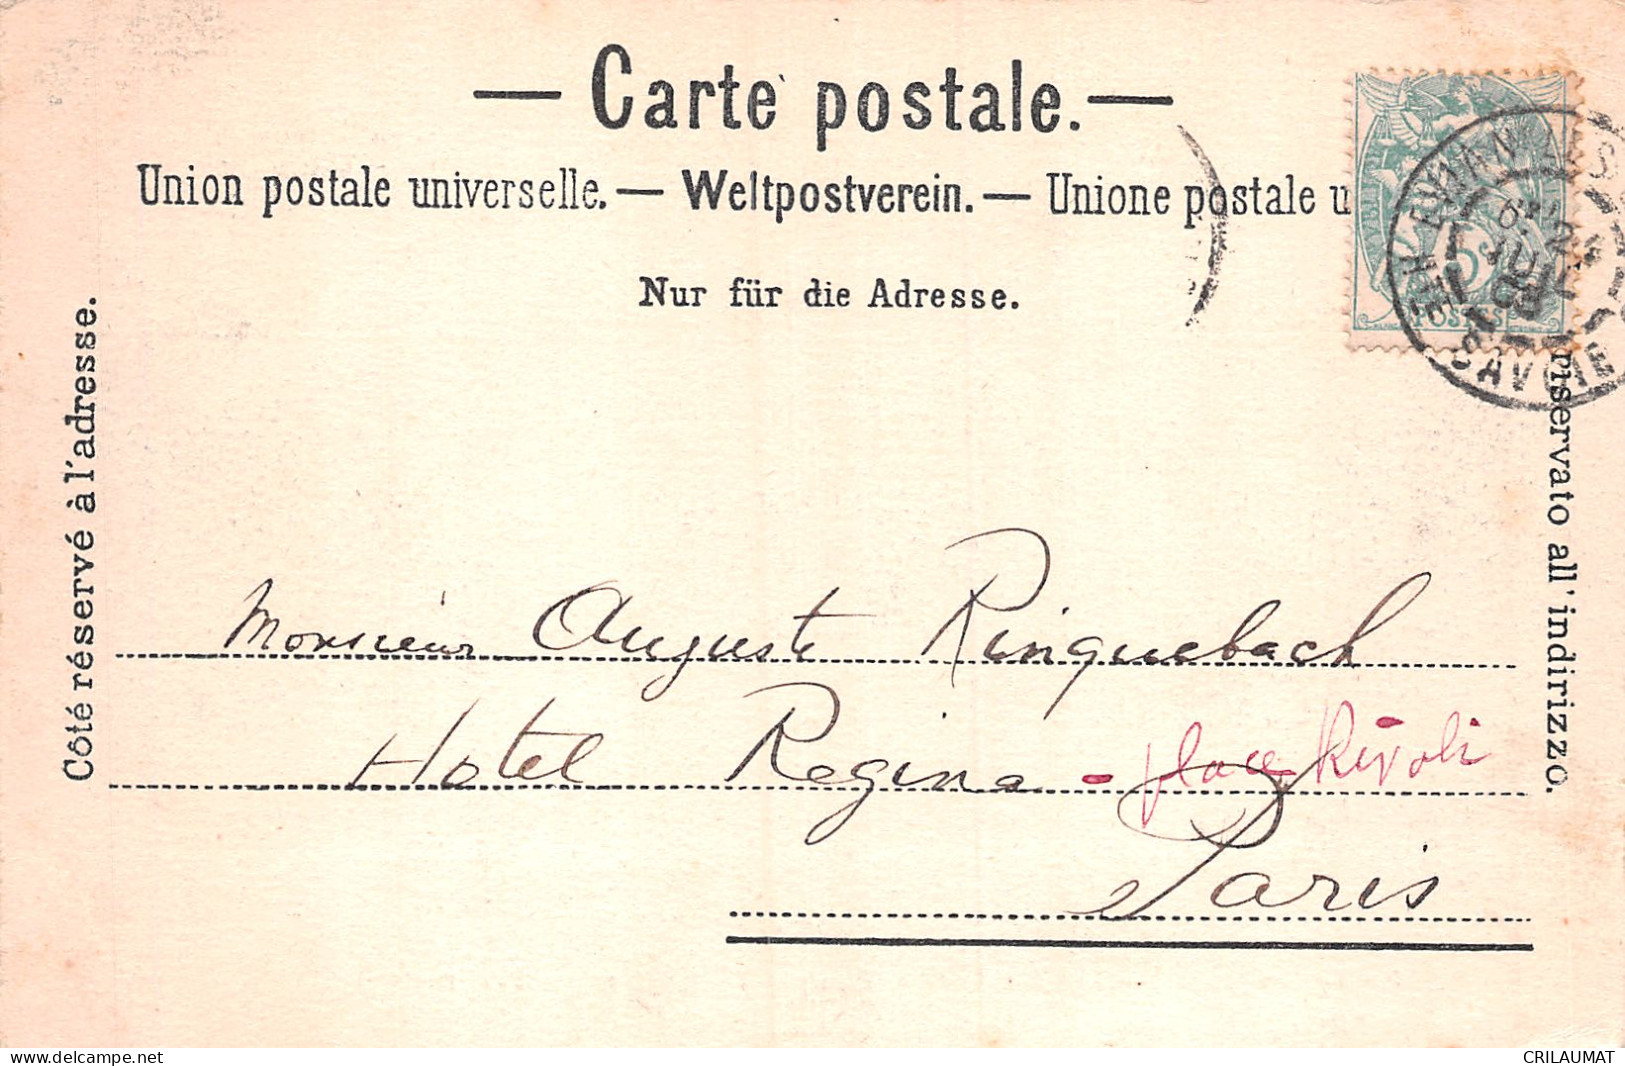 — Carte postale. —
Union postale universelle. — Weltpostverein. — Unione postale u
Nur für die Adresse.
Côté réservé à l'adresse.
riservato all' indirizzo.
5c
POSTES
EVIAN LES
SAVOIE
Monsieur Auguste Ringuebach
Hotel Regina - place Rivoli
Paris
www.delcampe.net
CRILAUMAT